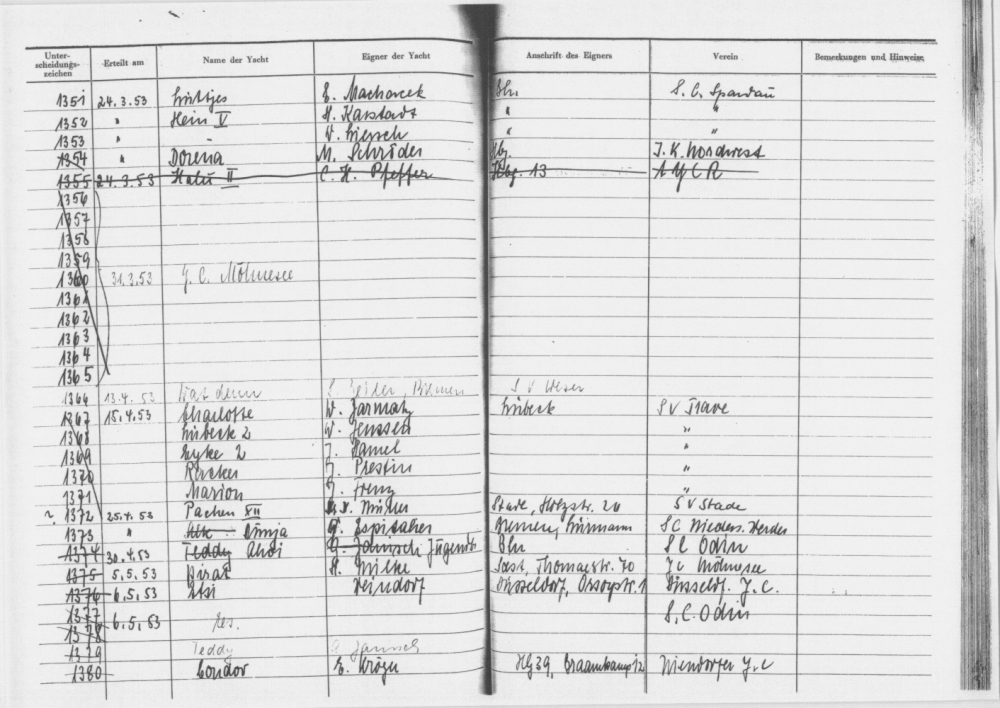 Unter-scheidungs-zeichen Erteilt am Name der Yacht Eigner der Yacht Anschrift des Eigners Verein Bemerkungen und Hinweise
1351 24.3.53 E. Machorek Bln. S. C. Spandau
1352 " Hein V H. Karstadt " "
1353 " - W. " "
1354 " Dorena M. Schröder Hbg. Y. K. Nordwest
1355 24.3.53 II C. H. Pfeffer Hbg. 13 A Y C R
1356
1357
1358
1359
1360 31.3.53 Y. C. Mölnsee
1361
1362
1363
1364
1365
1366 13.4.53 Bremen S V Weser
1367 15.4.53 Charlotte W. Lübeck S V Trave
1368 Lübeck 2 W. Jenssen "
1369 Lyke 2 J. "
1370 Racker J. Prestin "
1371 Marion J. Frenz "
? 1372 25.4.53 Pachen XII Müller Stade, 20 S V Stade
1373 " Dunja Bremen, S C Nieders. Werder
1374 30.4.53 Teddy Ahoi G. Janisch Jugendt. Bln S C Odin
1375 5.5.53 Pirat H. Milke Soest, Thomaestr. 70 Y C Möhnesee
1376 6.5.53 Etsi Weindorf Düsseldorf, 1 Düsseld. Y. C.
1377 S. C. Odin
1378 6.5.53 res.
1379 Teddy G. Janisch
1380 Condor E. Kröger Hbg 39, Braamkamp 12 Niendorfer Y. C